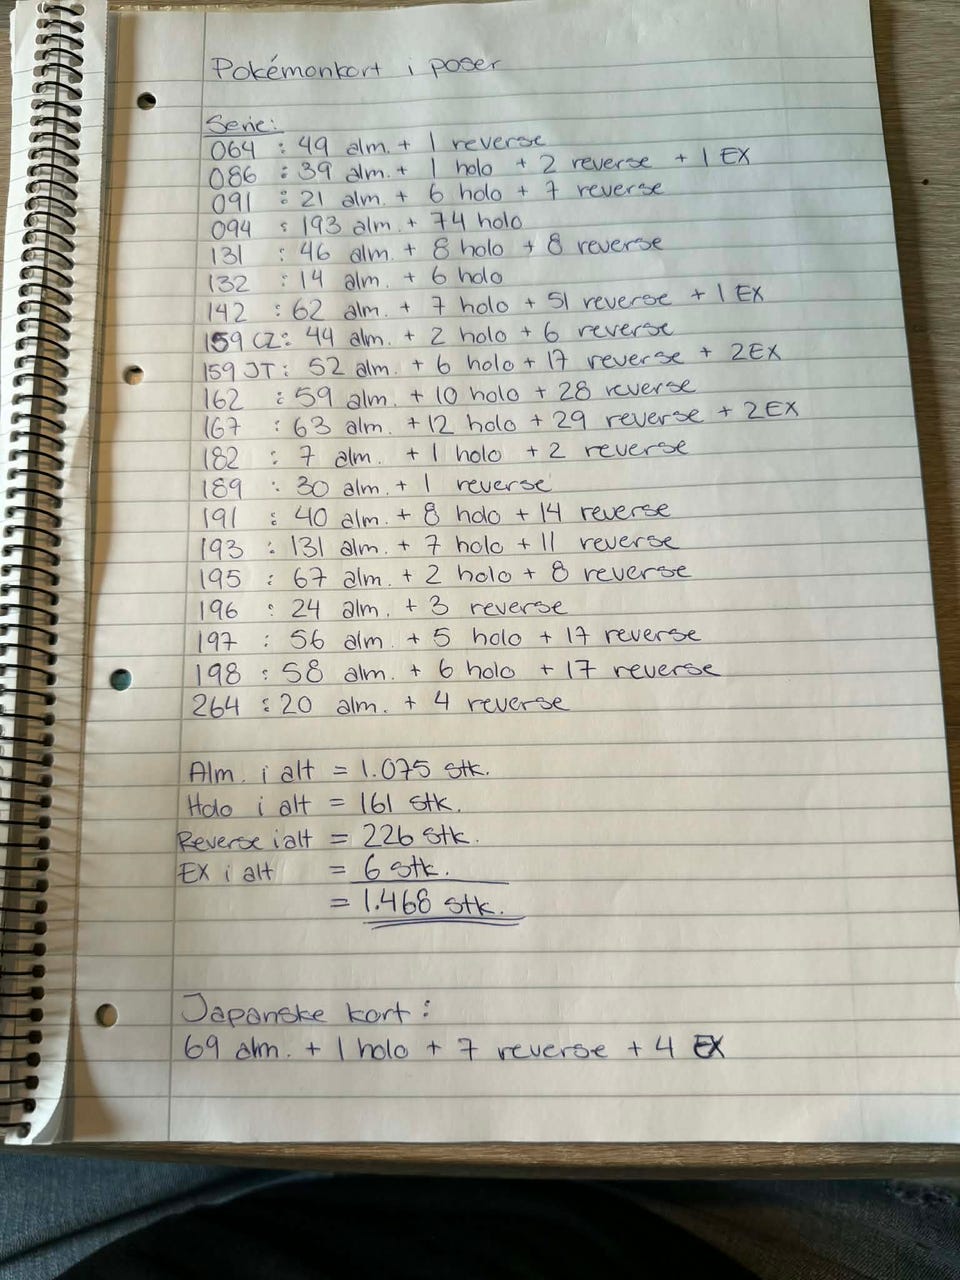 Pokémonkort i poser
Serie:
064 : 49 alm. + 1 reverse
086 : 39 alm. + 1 holo + 2 reverse + 1 EX
091 : 21 alm. + 6 holo + 7 reverse
094 : 193 alm. + 74 holo
131 : 46 alm. + 8 holo + 8 reverse
132 : 14 alm. + 6 holo
142 : 62 alm. + 7 holo + 51 reverse + 1 EX
159 CZ: 44 alm. + 2 holo + 6 reverse
159 JT: 52 alm. + 6 holo + 17 reverse + 2 EX
162 : 59 alm. + 10 holo + 28 reverse
167 : 63 alm. + 12 holo + 29 reverse + 2 EX
182 : 7 alm. + 1 holo + 2 reverse
189 : 30 alm. + 1 reverse
191 : 40 alm. + 8 holo + 14 reverse
193 : 131 alm. + 7 holo + 11 reverse
195 : 67 alm. + 2 holo + 8 reverse
196 : 24 alm. + 3 reverse
197 : 56 alm. + 5 holo + 17 reverse
198 : 58 alm. + 6 holo + 17 reverse
264 : 20 alm. + 4 reverse
Alm. i alt = 1.075 stk.
Holo i alt = 161 stk.
Reverse i alt = 226 stk.
EX i alt = 6 stk.
= 1.468 stk.
Japanske kort:
69 alm. + 1 holo + 7 reverse + 4 EX